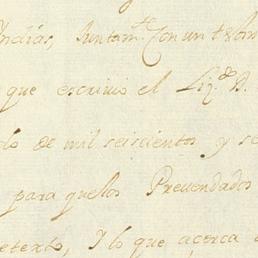 Indias, Juntam.te Con un tslom
que escrivio el Liz.do D.
do de mil seiscientos y se
para quellos Prevendados
etexto, Y lo que açerca